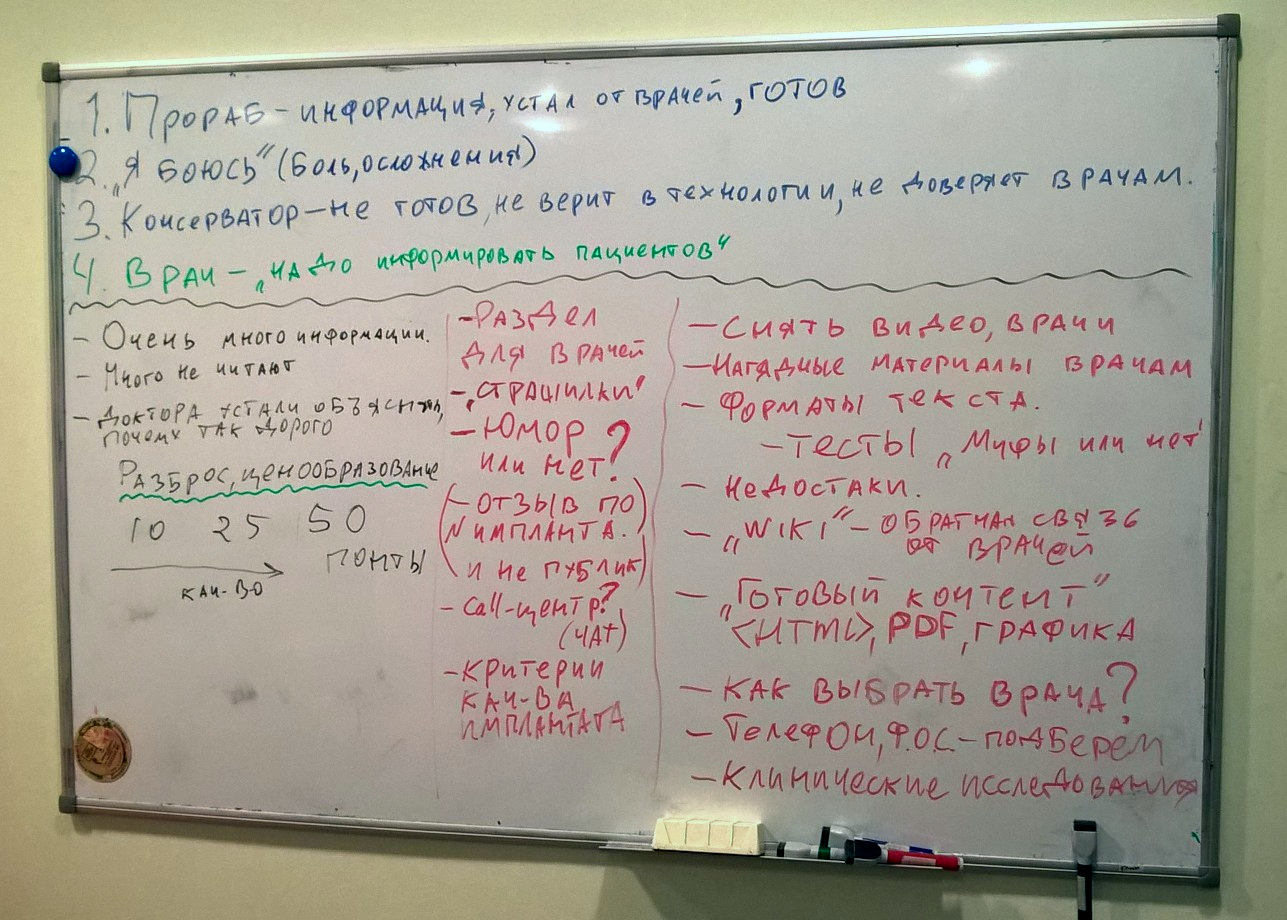 1. Прораб – информация, устал от врачей, готов
2. „Я боюсь“ (боль, осложнения)
3. Консерватор – не готов, не верит в технологии, не доверяет врачам.
4. Врач – „надо информировать пациентов“
– Очень много информации.
– Много не читают
– Доктора устали объяснять,
почему так дорого
Разброс, ценообразование
10 25 50
понты
кач-во
– Раздел
для врачей
– „Страшилки“
– Юмор
или нет?
(– Отзыв по
N импланта.
и не публик)
– Call-центр?
(чат)
– Критерии
кач-ва
имплантата
– Снять видео, врачи
– Нагядные материалы врачам
– Форматы текста.
– Тесты „Мифы или нет“
– Недостаки.
– „WIKI“ – обратная связь
от врачей
– „Готовый контент“
<HTML>, PDF, графика
– Как выбрать врача?
– Телефон, Ф.О.С. – подберем
– Клинические исследования